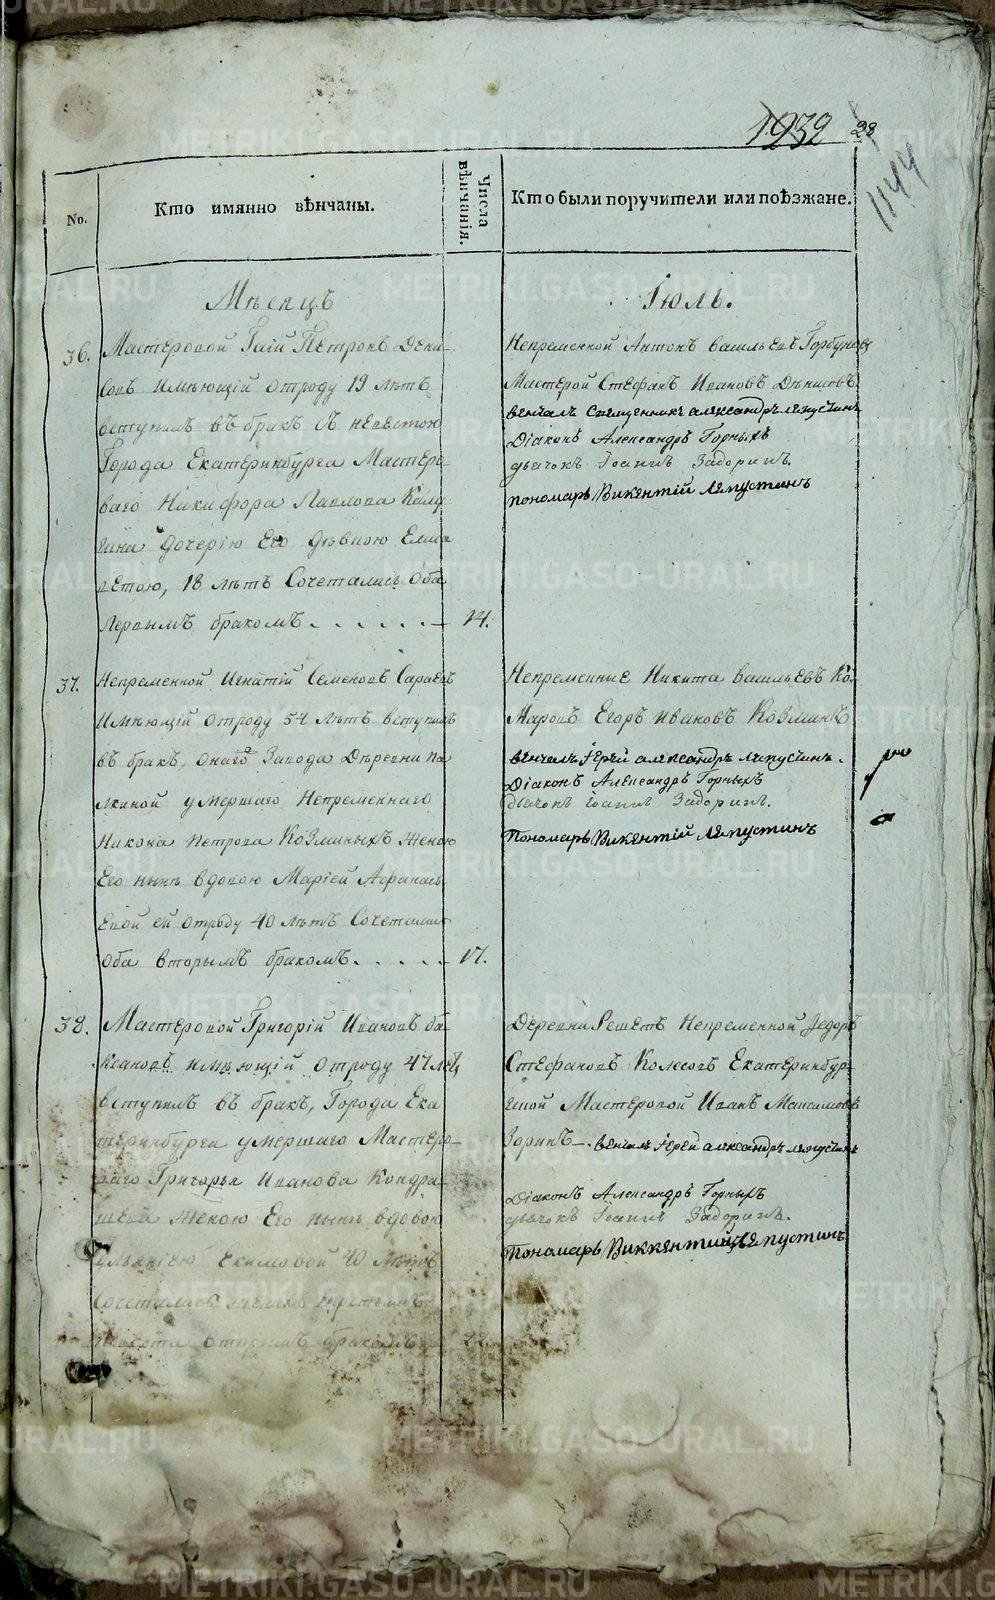 1932 28
1144
No. Кто имянно вѣнчаны. Числа вѣнчанія. Кто были поручители или поѣзжане.
Мѣсяцъ Іюль.
36. Мастеровой Гаій Петровъ Дени-
совъ имѣющій отроду 19 лѣтъ
вступилъ въ бракъ съ невестою
Города Екатеринбурга Мастеро-
ваго Никифора Павлова
дочерію Его дѣвкою Елиса
ветою, 18 лѣтъ Сочетались оба
Первымъ бракомъ . . . . . . 14.
Непременной Антонъ васильевъ Горбуновъ
Мастерой Стефанъ Ивановъ Дѣнисовъ
венчалъ Священникъ александръ ляпустинъ
Діаконъ Александръ Горныхъ
дьячокъ Іоаннъ Задоринъ.
пономарь Викентій Ляпустинъ
37. Непременной Игнатій Семеновъ Сараевъ
Имѣющій отроду 54 лѣтъ вступилъ
въ бракъ, онаго Завода Деревни
умершаго Непременнаго
Никона Петрова Козминыхъ женою
Его нынѣ вдовою Маріей Афанась
Евой ей отроду 40 лѣтъ Сочетались
оба вторымъ бракомъ. . . . . 17.
Непременные Никита васильевъ Ко-
маровъ Егоръ ивановъ Козминъ
венчалъ іерей александръ ляпустинъ.
Діаконъ Александръ Горныхъ
дьячокъ іоаннъ Задоринъ.
Пономарь Викентій Ляпустинъ
38. Мастеровой Григорій Ивановъ ба-
имѣющій отроду 47 летъ
вступилъ въ бракъ, Города Ека
теринбурга умершаго Мастеро-
ваго Григорья Иванова Кондра-
шева женою Его нынѣ вдовою
Екимовой 40 лѣтъ
Сочетались
вторымъ бракомъ
Деревни Решетъ Непременной Федоръ
Стефановъ Колесовъ Екатеринбур-
гской Мастеровой Иванъ Максимовъ
Зоринъ. венчалъ іерей александръ ляпустинъ
Діаконъ Александръ Горныхъ
дьячокъ Іоаннъ Задоринъ.
Пономарь Виккентий Ляпустинъ
METRIKI.GASO-URAL.RU